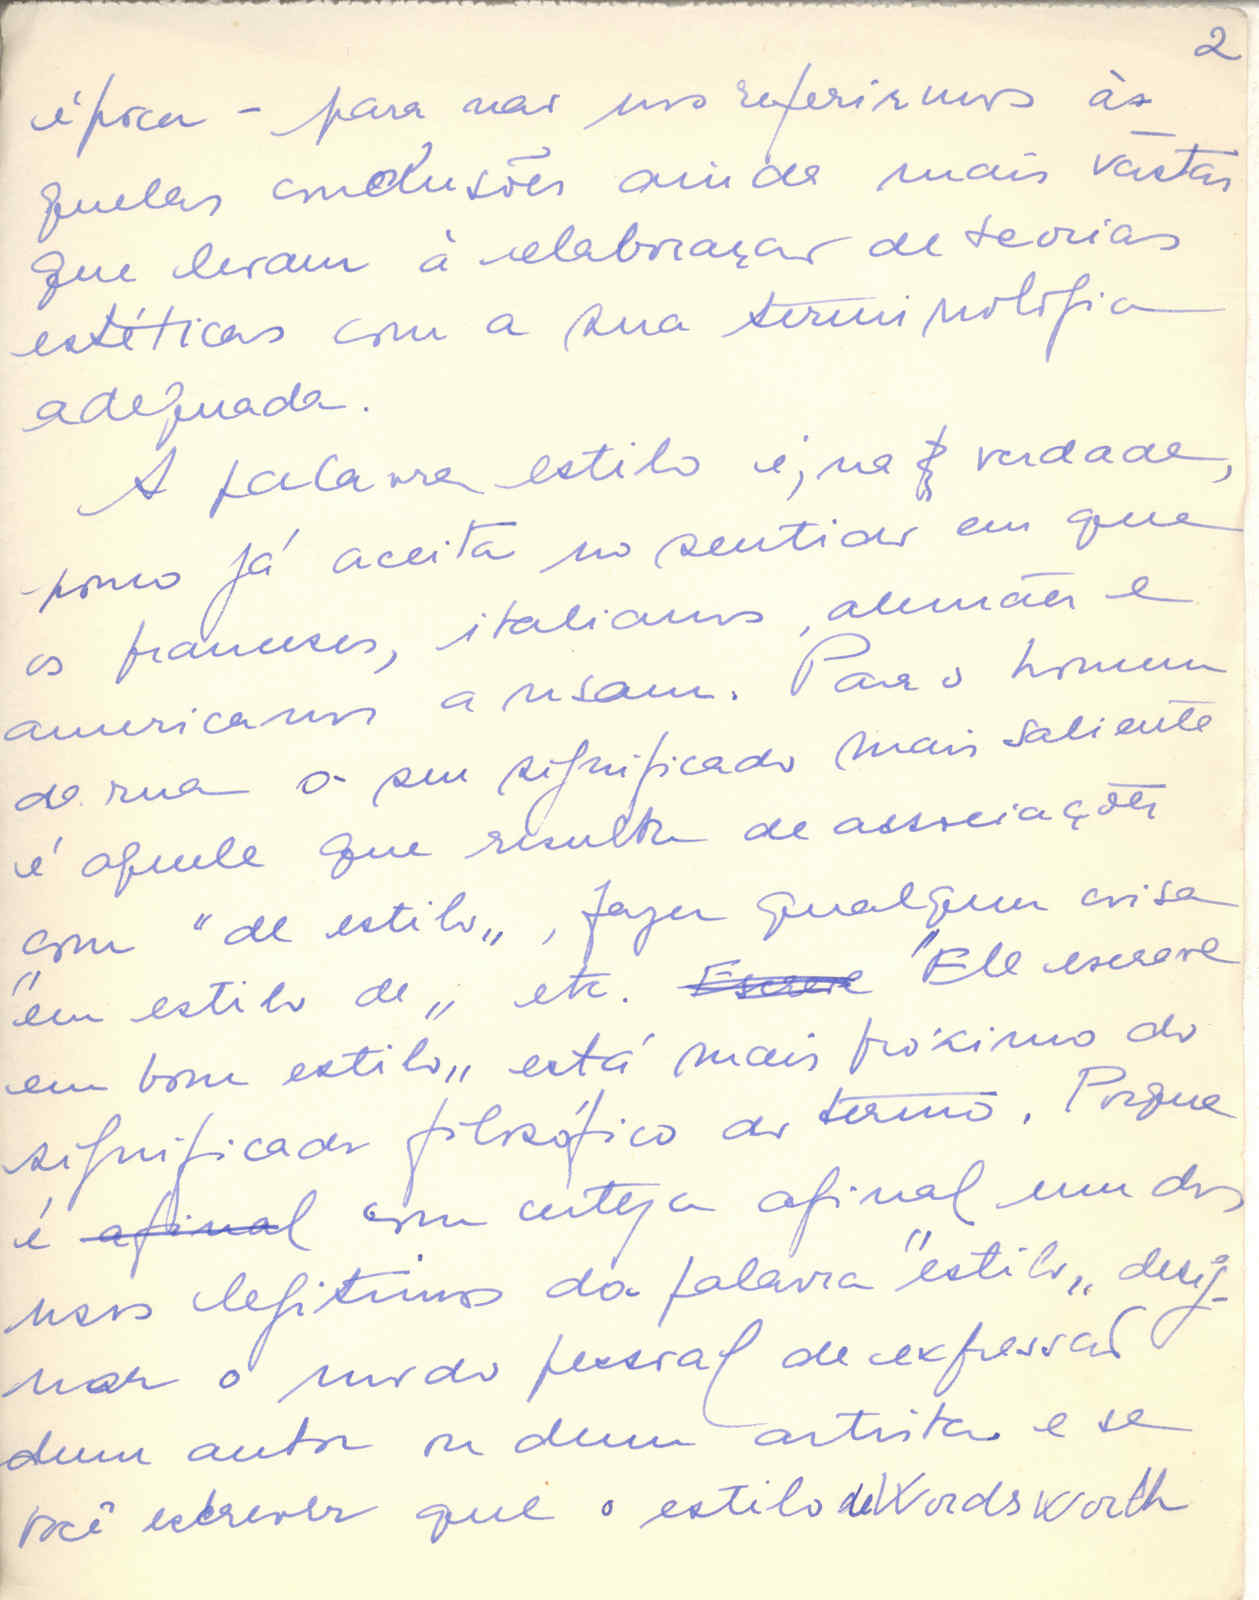 2
época - para não nos referirmos às
quelas conclusões ainda mais vastas
que levam à elaboração de teorias
estéticas com a sua terminologia
adequada.
A palavra estilo é, na verdade,
pouco já aceita no sentido em que
os franceses, italianos, alemães e
americanos a usam. Para o homem
da rua o seu significado mais saliente
é aquele que resulta de associações
com "de estilo„, fazer qualquer coisa
"em estilo de„ etc. Escreve "Ele escreve
em bom estilo„ está mais próximo do
significado filosófico do termo. Porque
é afinal com certeza afinal um dos
usos legítimos da palavra "estilo„ desig-
nar o modo pessoal de expressão
dum autor ou dum artista e se
você escrever que o estilo de Wordsworth